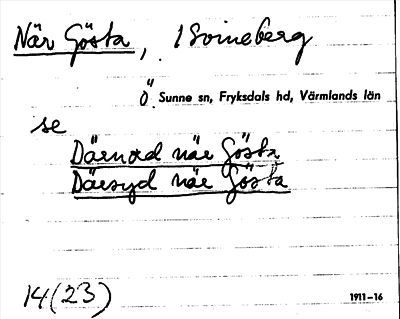 När Gösta, 1 Svineberg
Ö. Sunne sn, Fryksdals hd, Värmlands län
se
Därnord när Gösta
Därsyd när Gösta
14(23) 1911-16